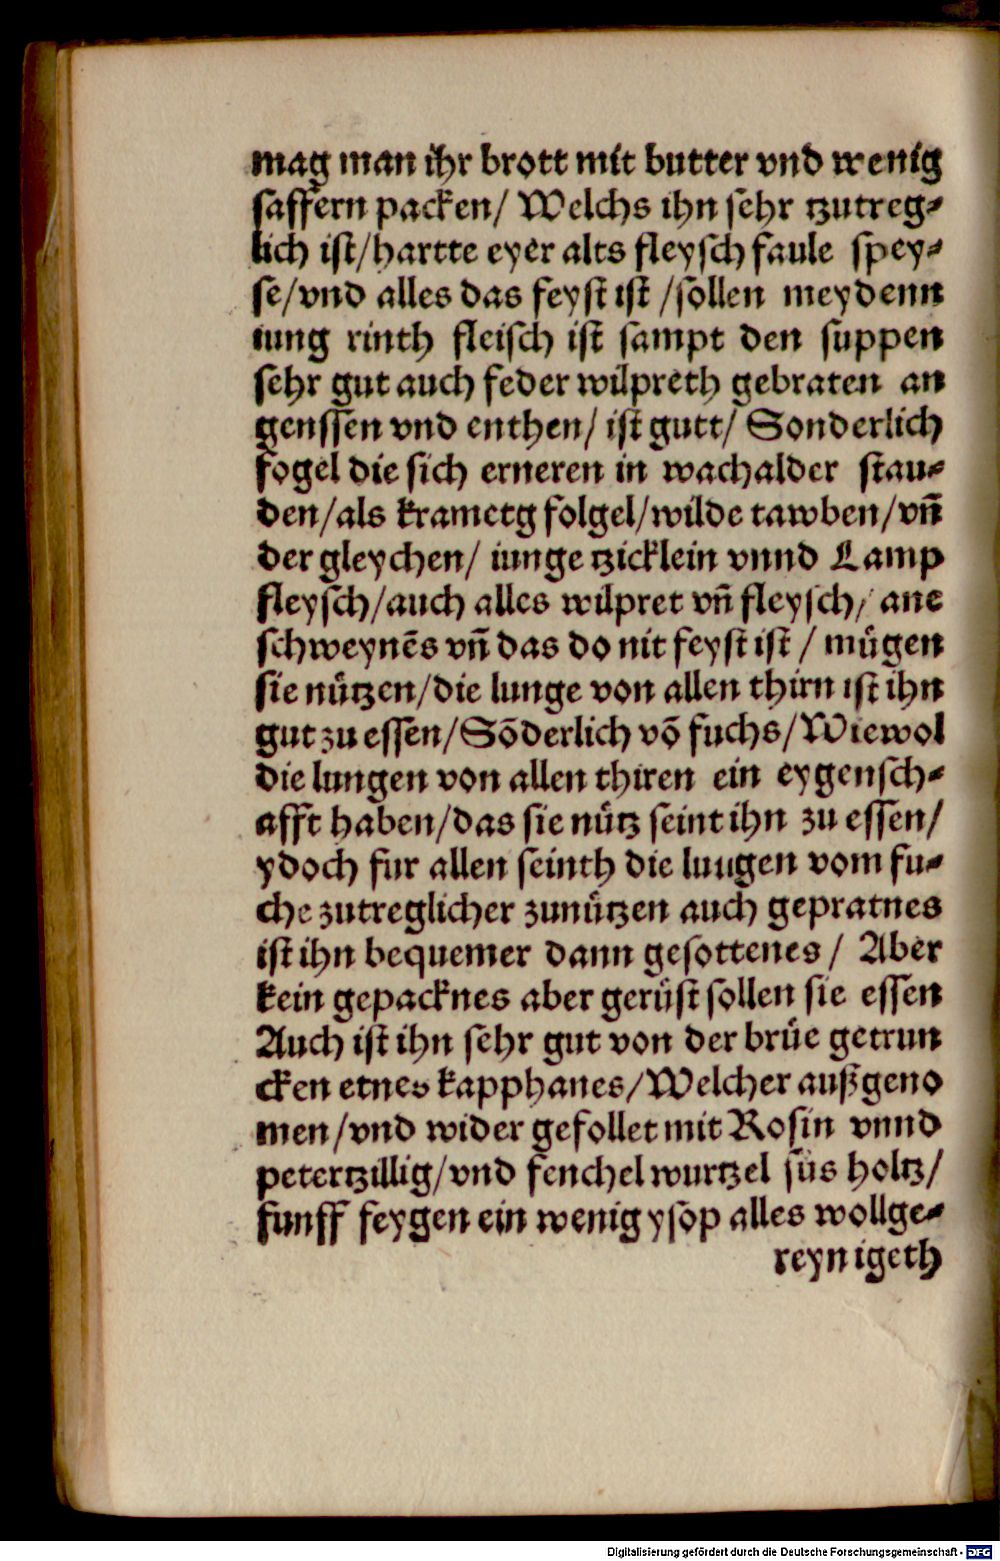 mag man ihr brott mit butter vnd wenig
saffern packen/ Welchs ihn sehr tzutreg-
lich ist/hartte eyer alts fleysch faule spey-
se/vnd alles das feyst ist /sollen meydenn
iung rinth fleisch ist sampt den suppen
sehr gut auch feder wilpreth gebraten an
genssen vnd enthen/ ist gutt/ Sonderlich
fogel die sich erneren in wachalder stau-
den/als krametg folgel/wilde tawben/vn̄
der gleychen/ iunge tzicklein vnnd Lamp
fleysch/auch alles wilpret vn̄ fleysch/ ane
schweynēs vn̄ das do nit feyst ist / mügen
sie nützen/die lunge von allen thirn ist ihn
gut zu essen/Sōderlich vō fuchs/Wiewol
die lungen von allen thiren ein eygensch-
afft haben/das sie nütz seint ihn zu essen/
ydoch fur allen seinth die luugen vom fu-
che zutreglicher zunützen auch gepratnes
ist ihn bequemer dann gesottenes / Aber
kein gepacknes aber gerüst sollen sie essen
Auch ist ihn sehr gut von der brüe getrun
cken etnes kapphanes/Welcher außgeno
men/vnd wider gefollet mit Rosin vnnd
petertzillig/vnd fenchel wurtzel süs holtz/
funff feygen ein wenig ysop alles wollge-
reyn igeth
Digitalisierung gefördert durch die Deutsche Forschungsgemeinschaft - DFG